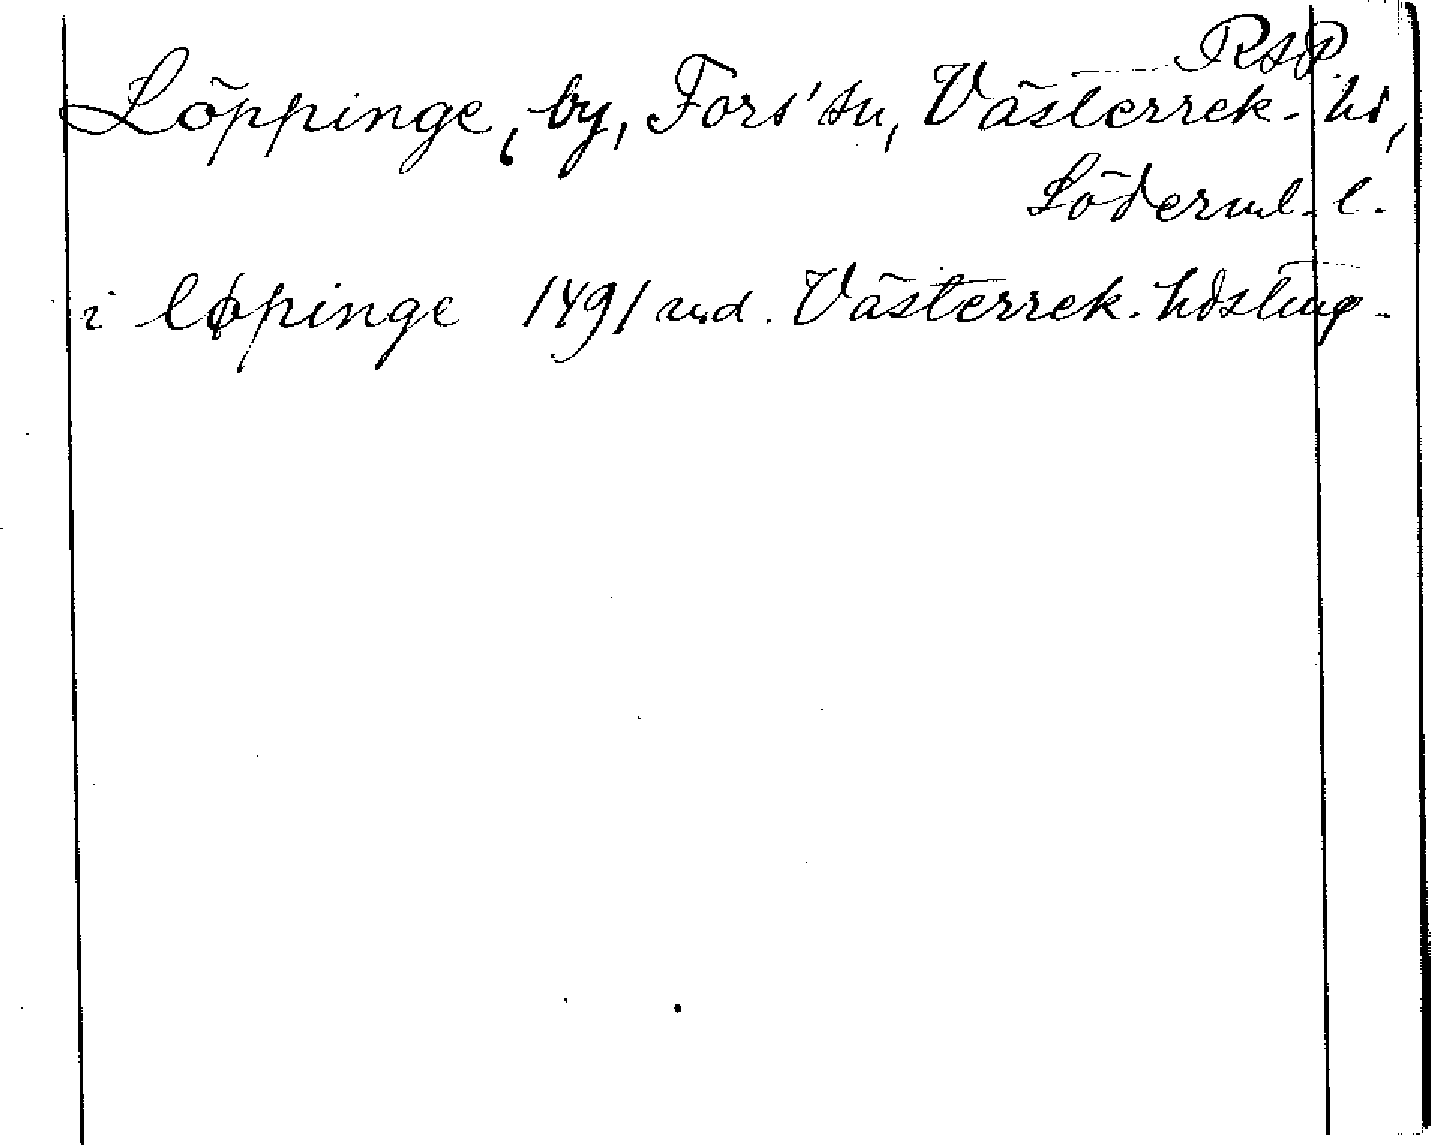 RAP
Löppinge, by, Fors' sn, Västerrek. hd,
Söderml. l.
i løppinge 1491 und. Västerrek. hdsting.